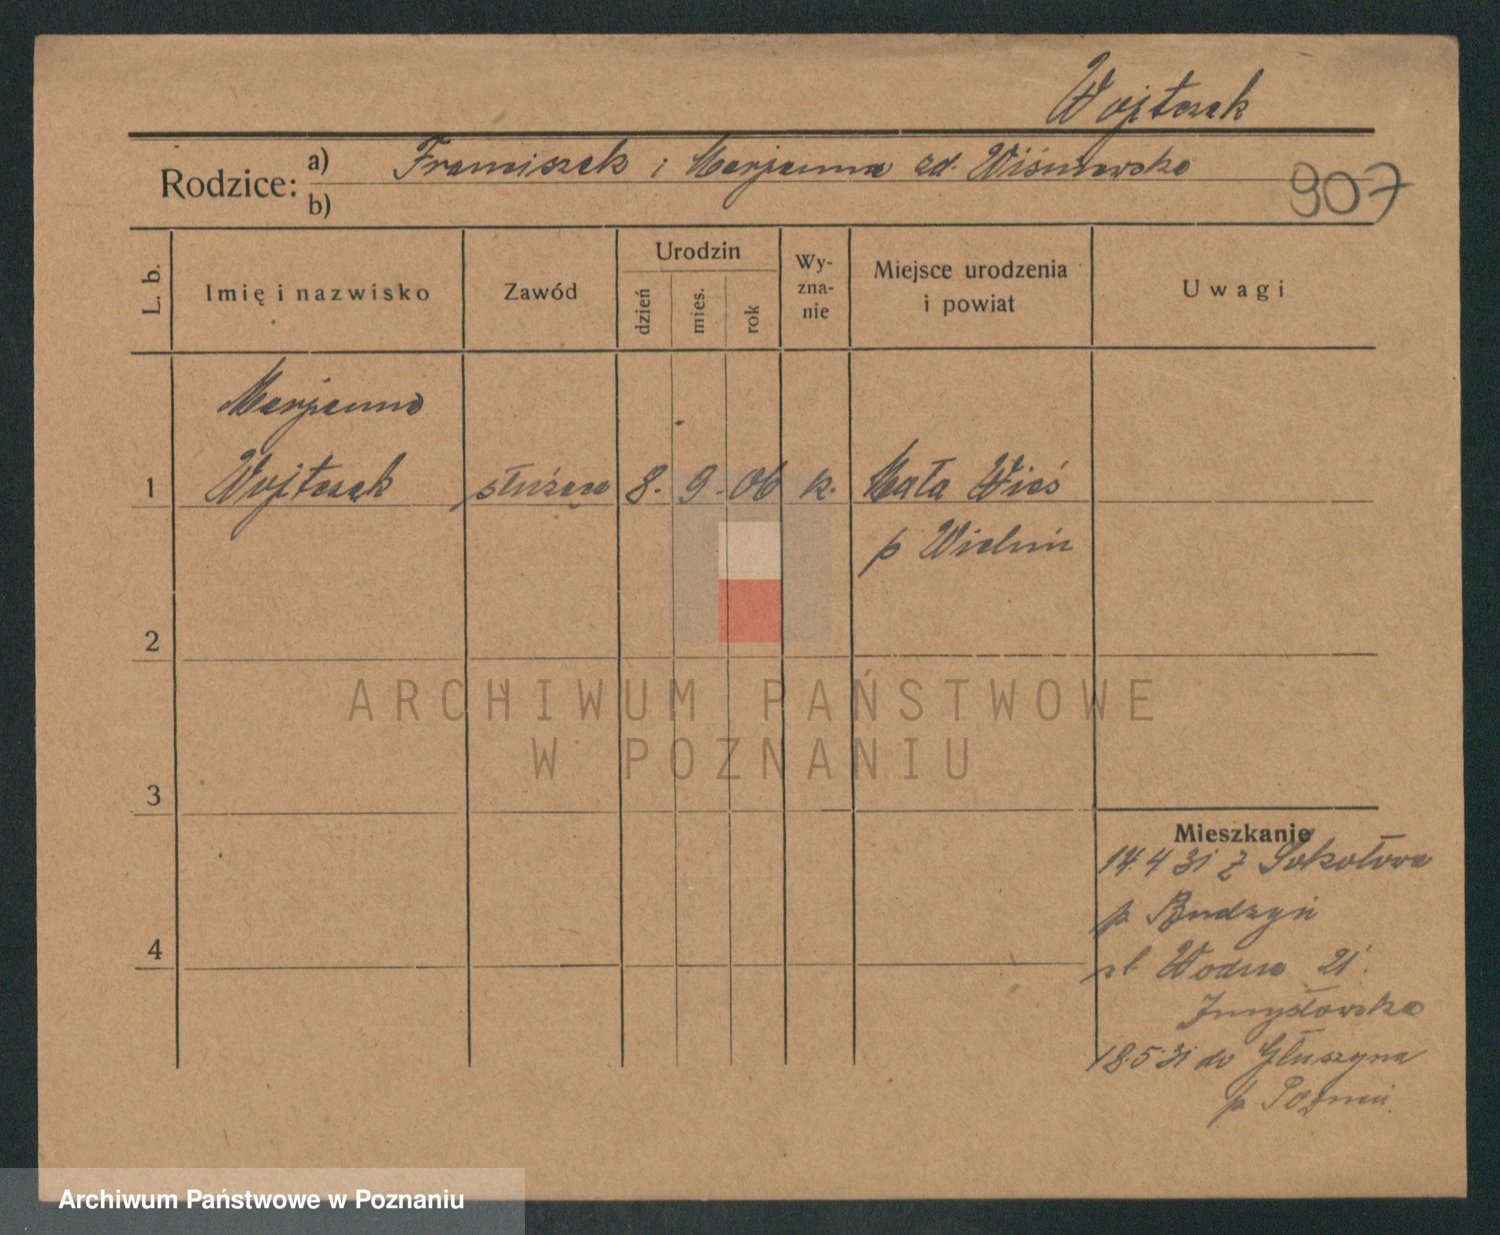 Wojtczak
Rodzice: a) Franciszek i Marjanna zd. Wiśniewska
b)
907
L. b.
Imię i nazwisko
Zawód
Urodzin
dzień
mies.
rok
Wy-
zna-
nie
Miejsce urodzenia
i powiat
Uwagi
Marjanna
1 Wojtczak służąca 8. 9. 06 k. Mała Wieś
p Wieluń
2
ARCHIWUM PAŃSTWOWE
W POZNANIU
3
Mieszkanie
14.4 31 z Sokołowa
p. Budzyń
4
ul. Wodna 21.
18.5.31 do Głuszyna
p. Poznań
Archiwum Państwowe w Poznaniu